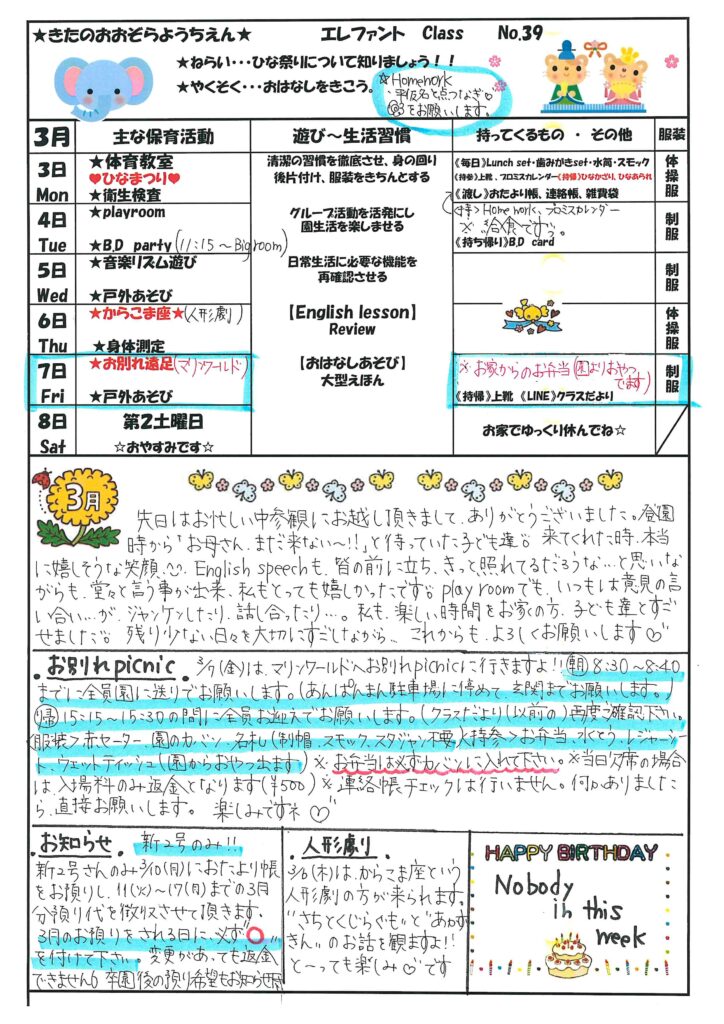 ★きたのおおぞらようちえん★ エレファント Class No.39
★ねらい・・・ひな祭りについて知りましょう！！
★やくそく・・・おはなしをきこう。
☆Homework
・平仮名と点つなぎ♡
③をお願いします。
3月 主な保育活動 遊び～生活習慣 持ってくるもの ・ その他 服装
3日 Mon
★体育教室
♥ひなまつり♥
★衛生検査
清潔の習慣を徹底させ、身の回り
後片付け、服装をきちんとする
《毎日》Lunch set・歯みがきset・水筒・スモック
《持参》上靴、プロミスカレンダー《持帰》ひなかざり、ひなあられ
《渡し》おたより帳、連絡帳、雑費袋
体操服
4日 Tue
★playroom
★B.D party(11:15～Big room)
グループ活動を活発にし
園生活を楽しませる
〈持〉Home work、プロミスカレンダー
※給食です。
《持ち帰り》B.D card
制服
5日 Wed
★音楽リズム遊び
★戸外あそび
日常生活に必要な機能を
再確認させる
制服
6日 Thu
★からこま座★(人形劇)
★身体測定
【English lesson】
Review
体操服
7日 Fri
★お別れ遠足(マリンワールド)
★戸外あそび
【おはなしあそび】
大型えほん
※お家からのお弁当(園よりおやつ
でます)
《持帰》上靴 《LINE》クラスだより
制服
8日 Sat
第2土曜日
☆おやすみです☆
お家でゆっくり休んでね☆
3月
先日はお忙しい中参観にお越し頂きまして、ありがとうございました。登園
時から「お母さん、まだ来ない～!!」と待っていた子ども達。来てくれた時、本当
に嬉しそうな笑顔。English speechも、皆の前に立ち、きっと照れてるだろうな…と思いな
がらも、堂々と言う事が出来、私もとっても嬉しかったです。play roomでも、いつもは意見の言
い合い…が、ジャンケンしたり、話し合ったり…。私も、楽しい時間をお家の方、子ども達とすご
せました。残り少ない日々を大切にすごしながら、これからも、よろしくお願いします♡
・お別れpicnic・ 3/7(金)は、マリンワールドへお別れpicnicに行きますよ!! 朝8:30～8:40
までに全員園に送りでお願いします。(あんぱんまん駐車場に停めて、玄関までお願いします。)
帰15:15～15:30の間に全員お迎えでお願いします。(クラスだより(以前の)再度ご確認下さい。
〈服装〉赤セーター、園のカバン、名札(制帽、スモック、スタジャン不要)〈持参〉お弁当、水とう、レジャーシー
ト、ウェットティッシュ(園からおやつ出ます)※お弁当は必ずカバンに入れて下さい。※当日欠席の場合
は、入場料のみ返金となります(¥500)※連絡帳チェックは行いません。何かありました
ら、直接お願いします。 楽しみですネ♡
・お知らせ・ 新2号のみ!!
新2号さんのみ3/10(月)におたより帳
をお預りし、11(火)～17(月)までの3月
分預り代を徴収させて頂きます。
3月のお預りをされる日に、必ず"○"
を付けて下さい。変更があっても返金
できません。卒園後の預り希望もお知らせ
・人形劇り
3/6(木)は、からこま座という
人形劇の方が来られます。
"さちとくじらぐも"と"あかず
きん"のお話を観ますよ!!
と～っても楽しみ♡です
HAPPY BIRTHDAY
Nobody
in this
week